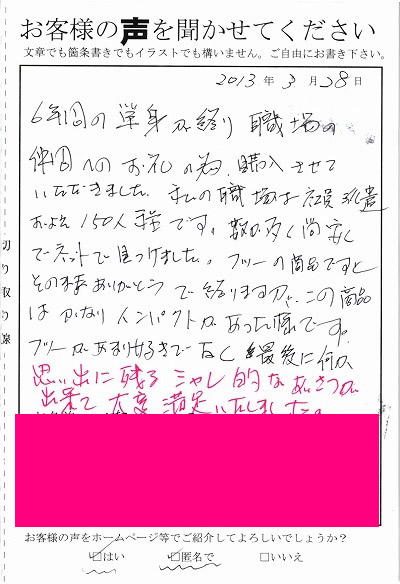 お客様の声を聞かせてください
文章でも箇条書きでもイラストでも構いません。ご自由にお書き下さい。
2013年3月28日
6年間の単身が終り 職場の
仲間へのお礼の為、購入させて
いただきました。私の職場は
およそ150人程です。数が多く尚安く
でネットで見つけました。フツーの商品ですと
その時ありがとうで終りますが、この商品
はかなりインパクトがあった様です。
フツーがあまり好きでなく 最後に何か
思い出に残るシャレ的なあいさつが
出来て大変満足いたしました。
切り取り線
お客様の声をホームページ等でご紹介してよろしいでしょうか?
□はい □匿名で □いいえ